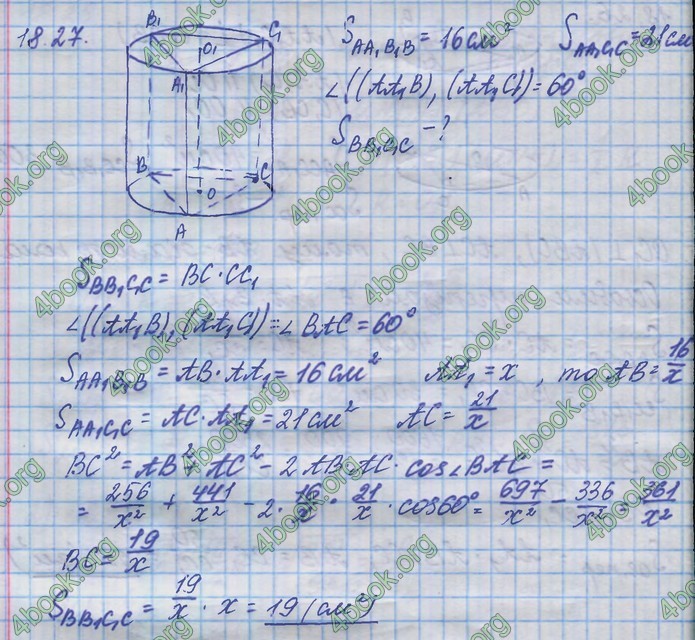 18.27.
B₁ C₁ O₁ A₁
B C O A
S_{AA₁B₁B} = 16 см² S_{AA₁C₁C} = 21 см
∠((AA₁B), (AA₁C)) = 60°
S_{BB₁C₁C} - ?
S_{BB₁C₁C} = BC · CC₁
∠((AA₁B), (AA₁C)) = ∠BAC = 60°
S_{AA₁B₁B} = AB · AA₁ = 16 см² AA₁ = x, то AB = 16/x
S_{AA₁C₁C} = AC · AA₁ = 21 см² AC = 21/x
BC² = AB² + AC² - 2 AB · AC · cos∠BAC =
= 256/x² + 441/x² - 2 · 16/x · 21/x · cos60° = 697/x² - 336/x² = 361/x²
BC = 19/x
S_{BB₁C₁C} = 19/x · x = 19 (см²)
4book.org